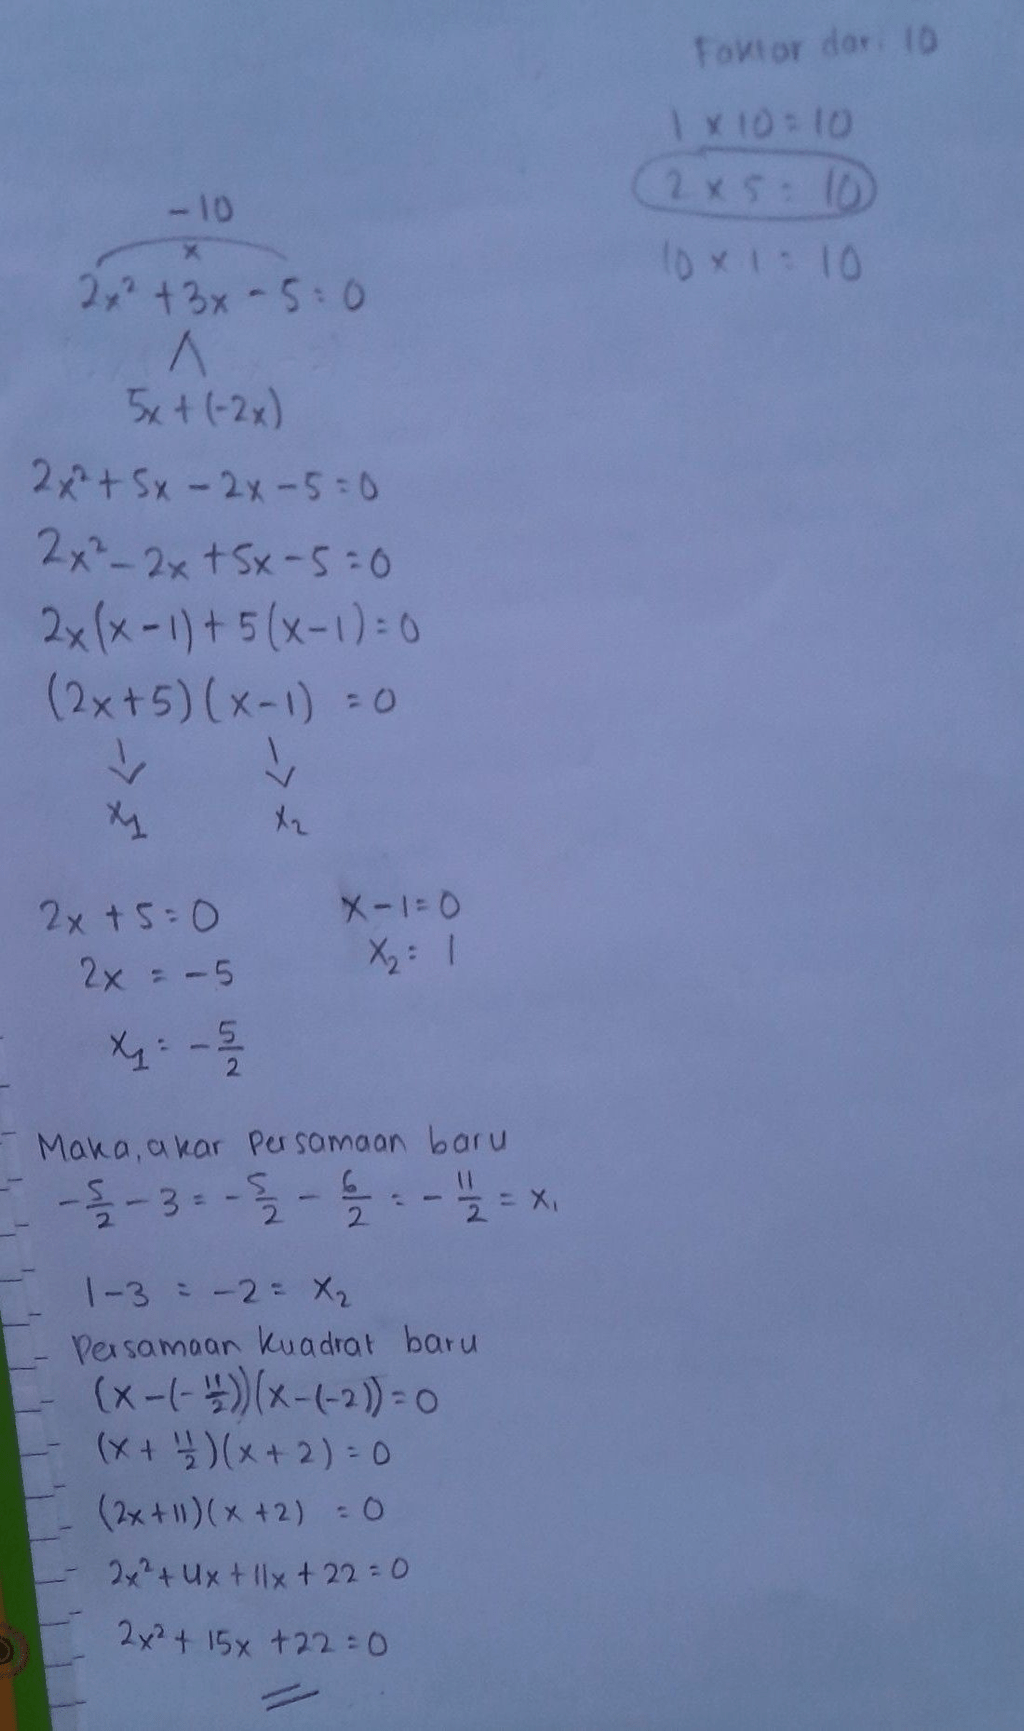 Faktor dari 10
1 x 10 = 10
2 x 5 = 10
10 x 1 = 10
-10
x
2x² + 3x - 5 = 0
∧
5x + (-2x)
2x² + 5x - 2x - 5 = 0
2x² - 2x + 5x - 5 = 0
2x(x-1) + 5(x-1) = 0
(2x+5)(x-1) = 0
↓ ↓
x₁ x₂
2x + 5 = 0 x-1=0
2x = -5 x₂ = 1
x₁ = -5/2
Maka, akar persamaan baru
-5/2 - 3 = -5/2 - 6/2 = -11/2 = x₁
1-3 = -2 = x₂
Persamaan kuadrat baru
(x-(-11/2))(x-(-2)) = 0
(x + 11/2)(x + 2) = 0
(2x+11)(x+2) = 0
2x² + 4x + 11x + 22 = 0
2x² + 15x + 22 = 0